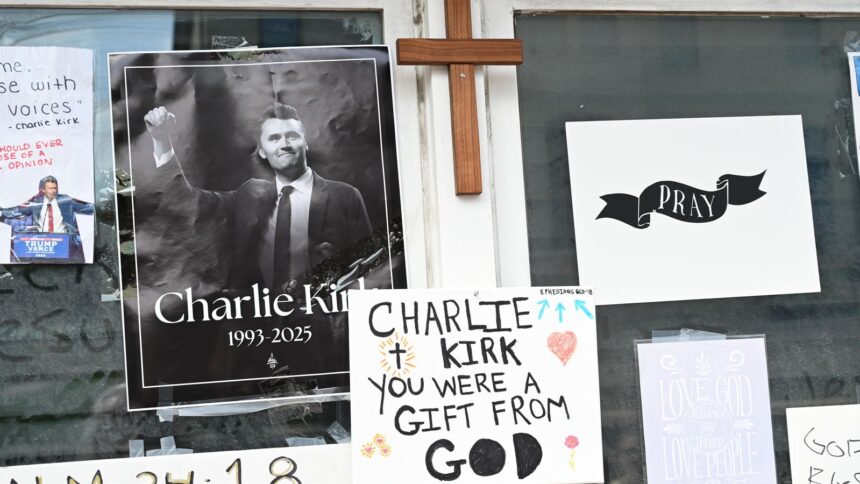 me.
se with
voices"
-charlie kirk
HOULD EVER
OSE OF A
OPINION
TRUMP
VANCE
Charlie Kirk
1993-2025
PRAY
EPHESIANS 6:11-18
CHARLIE
KIRK
YOU WERE A
GIFT FROM
GOD
LOVE GOD
LOVE PEOPLE
34:18